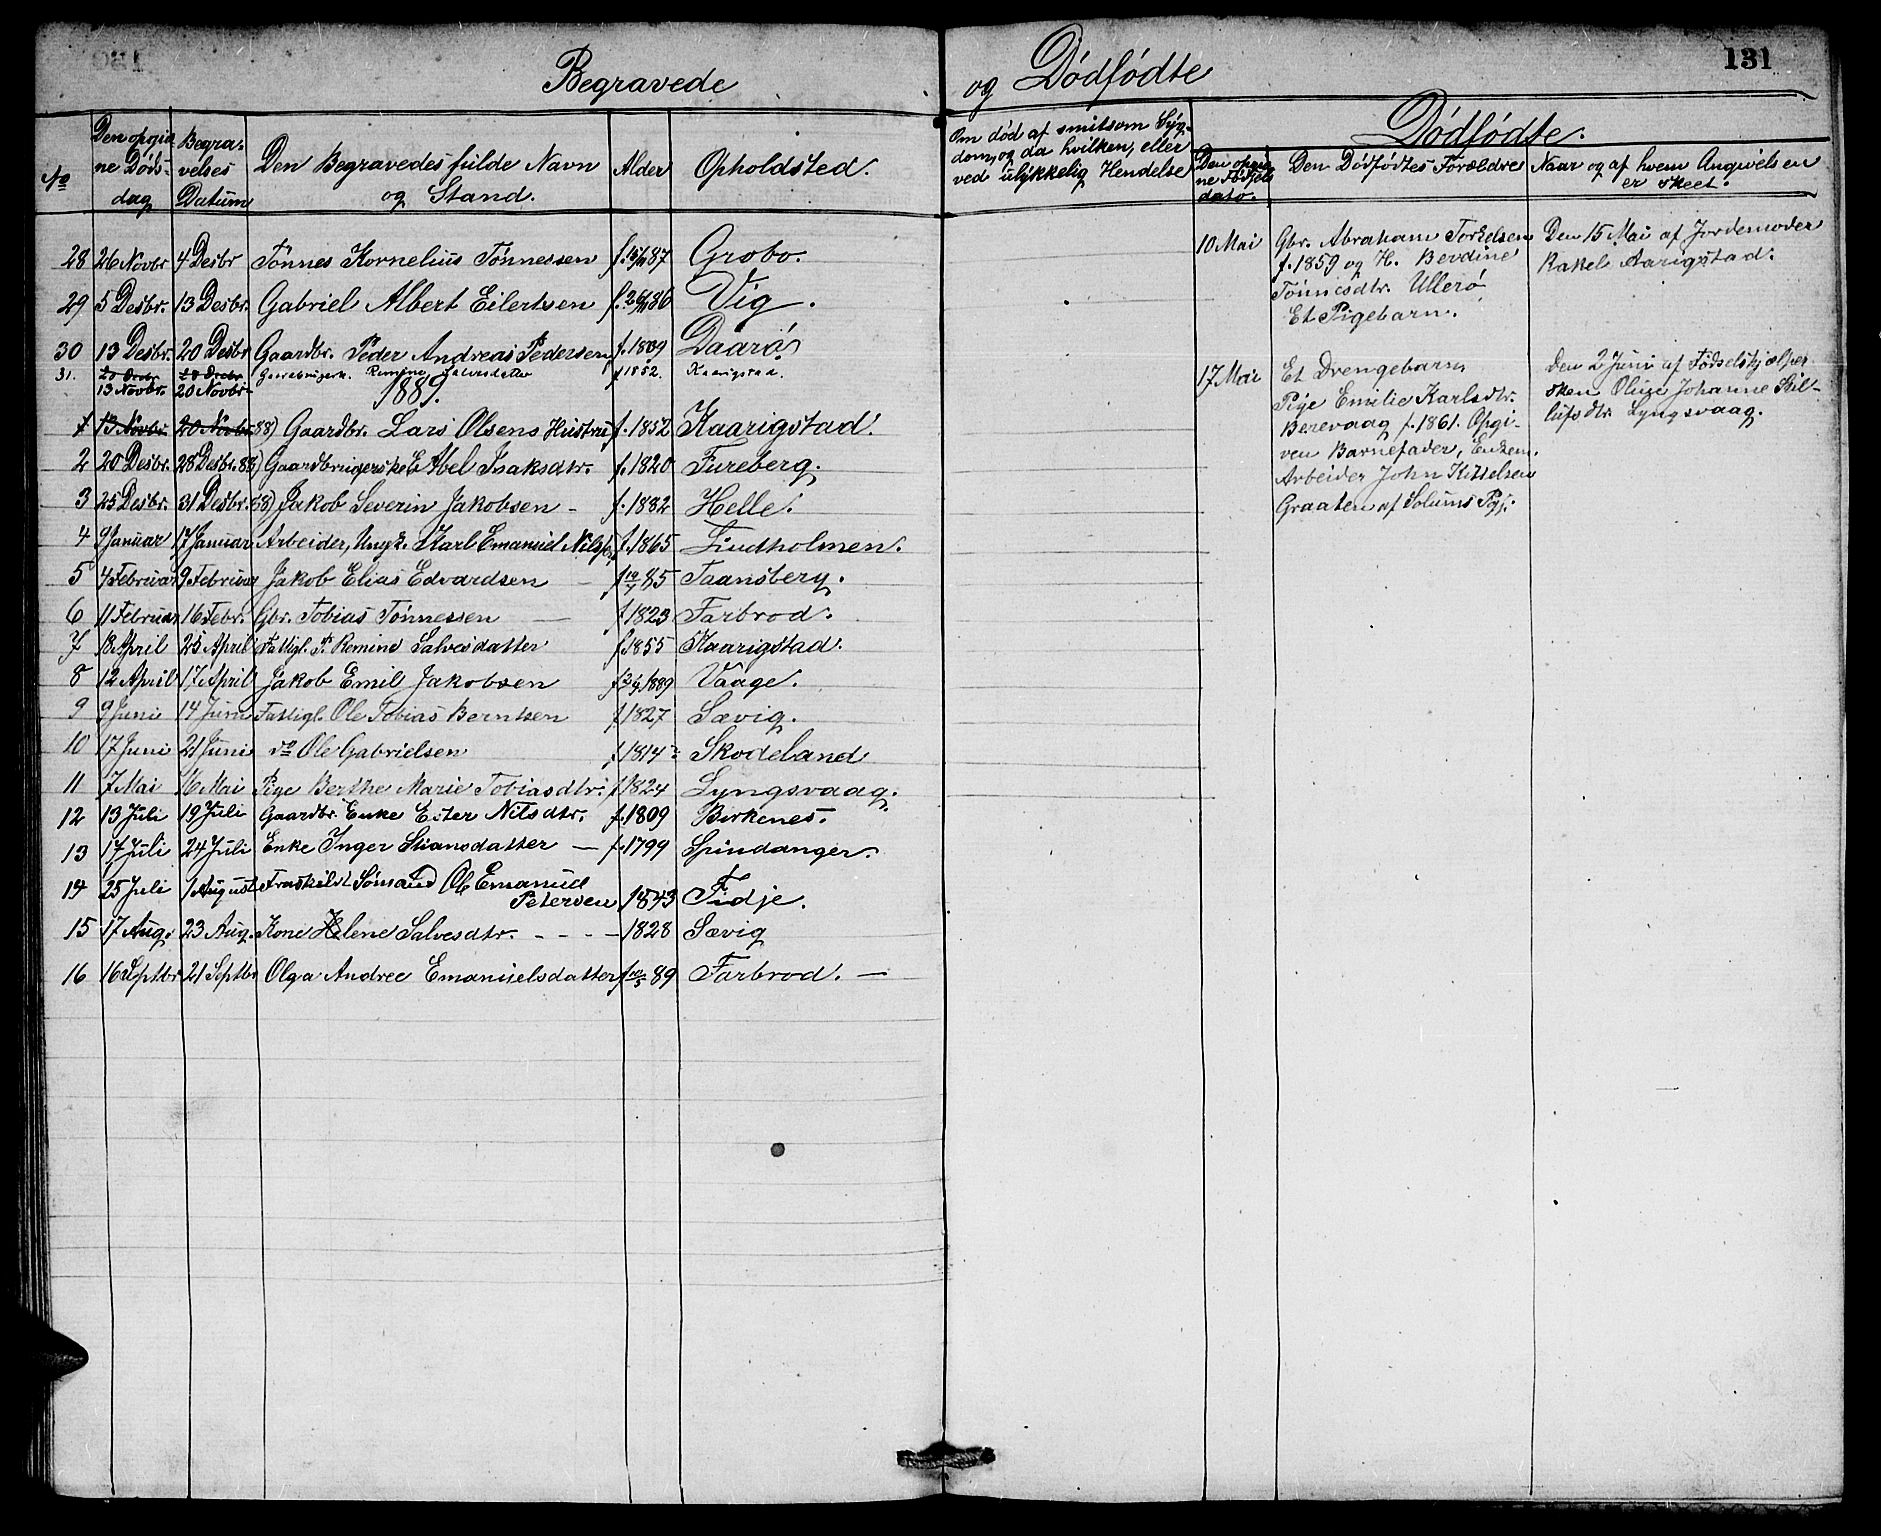 Begravede
og Dødfødte
131
No
Den opgivne Dødsdag
Begravelses Datum
Den Begravedes fulde Navn og Stand.
Alder
Opholdsted.
Om død af smitsom Sygdom, og da hvilken, eller ved ulykkelig Hendelse
Dødfødte.
Den opgivne Fødsels dato.
Den Dødfødtes Forældre
Naar og af hvem Angivelsen er skeet.
28 26 Novbr 4 Desbr Tønnes Kornelius Tønnessen 87 Grobo.
29 5 Desbr. 13 Desbr. Gabriel Albert Eilertsen 86 Vig.
30 13 Desbr. 20 Desbr Gaardbr. Peder Andreas Pedersen f. 1809 Daarø
31. 13 Novbr. 20 Novbr. Salvesdatter f 1852. Kaarigstad.
1889.
1 13 Novbr. 20 Novbr. 88) Gaardbr. Lars Olsens Hustru f. 1852 Kaarigstad.
2 20 Desbr. 28 Desbr. 88) Gaardbrugerske E Abel Isaksdtr. f. 1820 Fureberg.
3 25 Desbr. 31 Desbr. 88) Jakob Severin Jakobsen - f. 1882 Helle.
4 9 Januar 17 Januar Arbeider, Ungk. Karl Emanuel Nils f. 1865 Lindholmen.
5 4 Februar 9 Februar Jakob Elias Edvardsen - 85 Taansberg.
6 11 Februar 16 Febr. Gbr. Tobias Tønnessen — f 1823 Farbrod.
7 18 April 25 April Fattigl. P. Remine Salvesdatter f 1855 Kaarigstad.
8 12 April 17 April Jakob Emil Jakobsen 1889 Vaage.
9 9 Juni 14 Juni Fattigl. Ole Tobias Berntsen f. 1827 Sævig.
10 17 Juni 21 Juni do Ole Gabrielsen f 1814 Skodeland
11 7 Mai 16 Mai Pige Berthe Marie Tobiasdtr. f 1824 Lyngsvaag.
12 13 Juli 19 Juli Gaardbr. Enke Ester Nilsdtr. f. 1809 Birkenes.
13 17 Juli 24 Juli Enke Inger Stiansdatter — f. 1799 Spindanger.
14 25 Juli 1 August Fraskildt Sømand Ole Emanuel
Petersen 1843 Fidje.
15 17 Aug. 23 Aug. Kone Helene Salvesdtr. - - - - 1828 Sævig
16 16 Septbr 21 Septbr Olga Andree Emanuelsdatter 89 Farbrod. —
10 Mai Gbr. Abraham Torkelsen Den 15 Mai af Jordemoder
f. 1859 og H. Bevdine Rakel Aarigstad.
Tønnesdtr. Ullerø
Et Pigebarn.
17 Mai Et Drengebarn, Den 2 Juni af Fødselshjælper-
Pige Emilie Karlsdtr. sken Oluve Johanne
Berevaag f. 1861. Opgi- Lyngsvaag.
ven Barnefader, Enkem.
Arbeider John Kittelsen
Graaten af Solums Pgj.